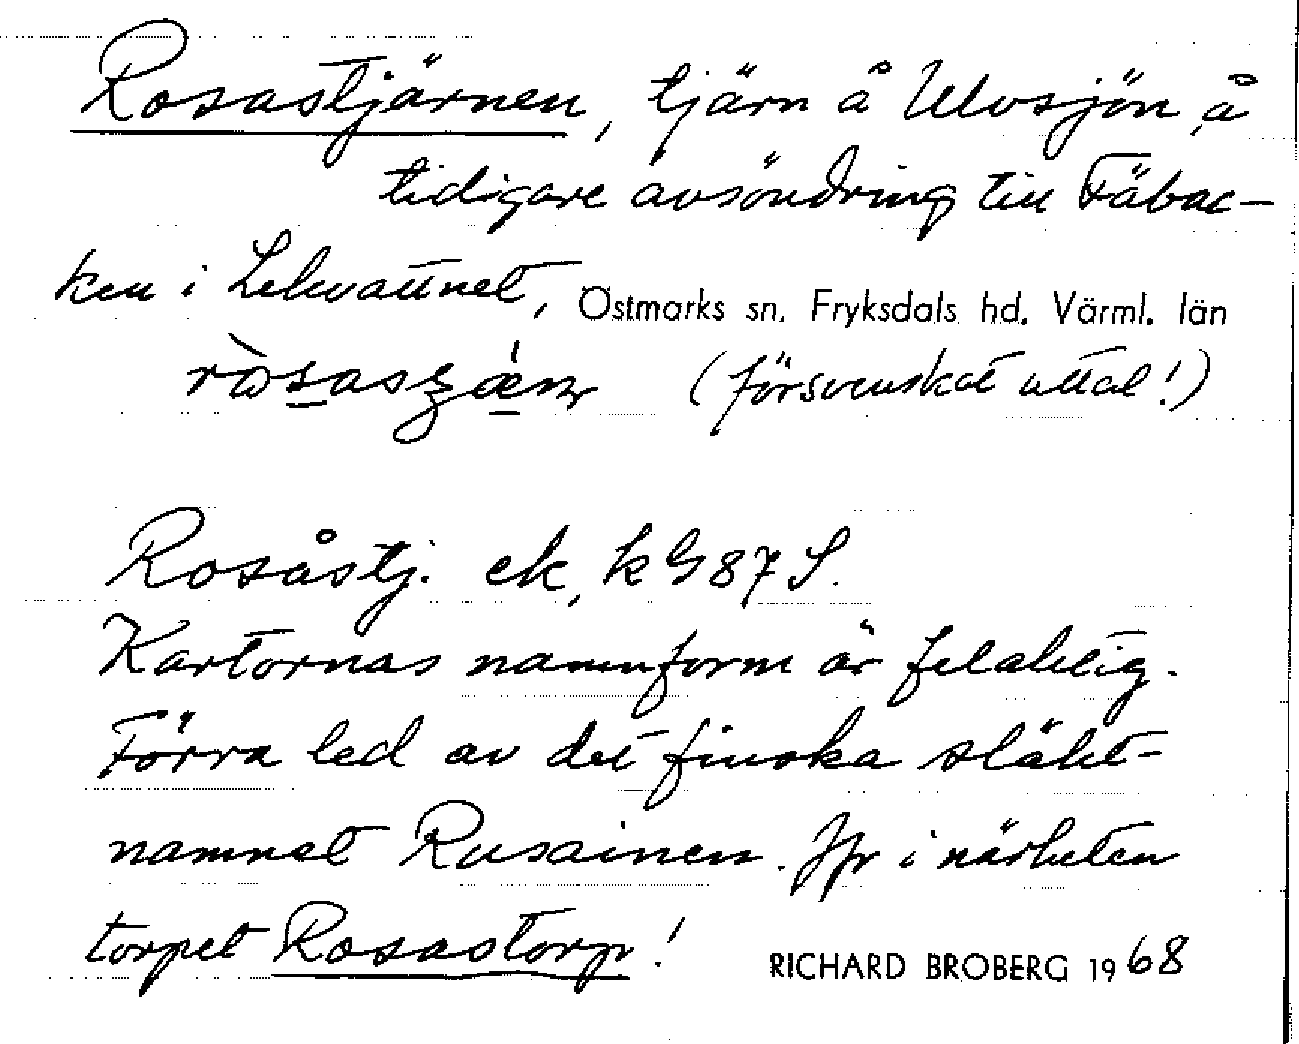 Rosastjärnen, tjärn å Ulvsjön, å
tidigare avsöndring till Fäbac-
ken i Lekvattnet, Östmarks sn. Fryksdals hd. Värml. län
(försvenskat uttal!)
Rosåstj. ek, k G 87 S.
Kartornas namnform är felaktig.
Förra led av det finska släkt-
namnet Rusainen. Jfr i närheten
torpet Rosastorp!
RICHARD BROBERG 1968